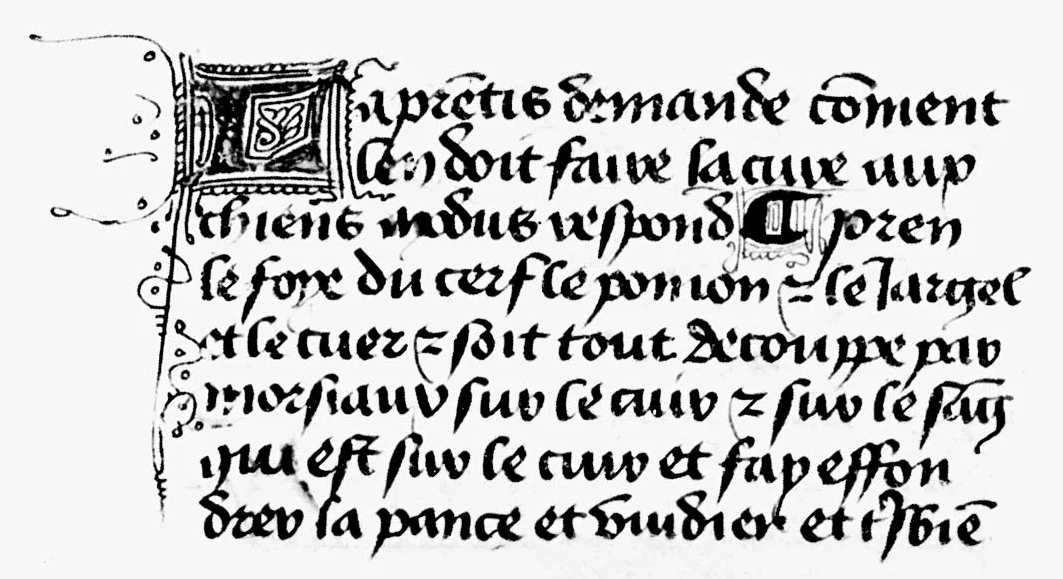 Laprẽtis demande cõment
len doit faire la cuire aux
chiens modus respond ¶ pren
le foye du cerf le pomon ⁊ le Jargel
et le cuer ⁊ soit tout decouppe par
morsiaux sur le cuir ⁊ sur le sãg
qui est sur le cuir et fay effon
drer la pance et vuidier et tʳsbiẽ